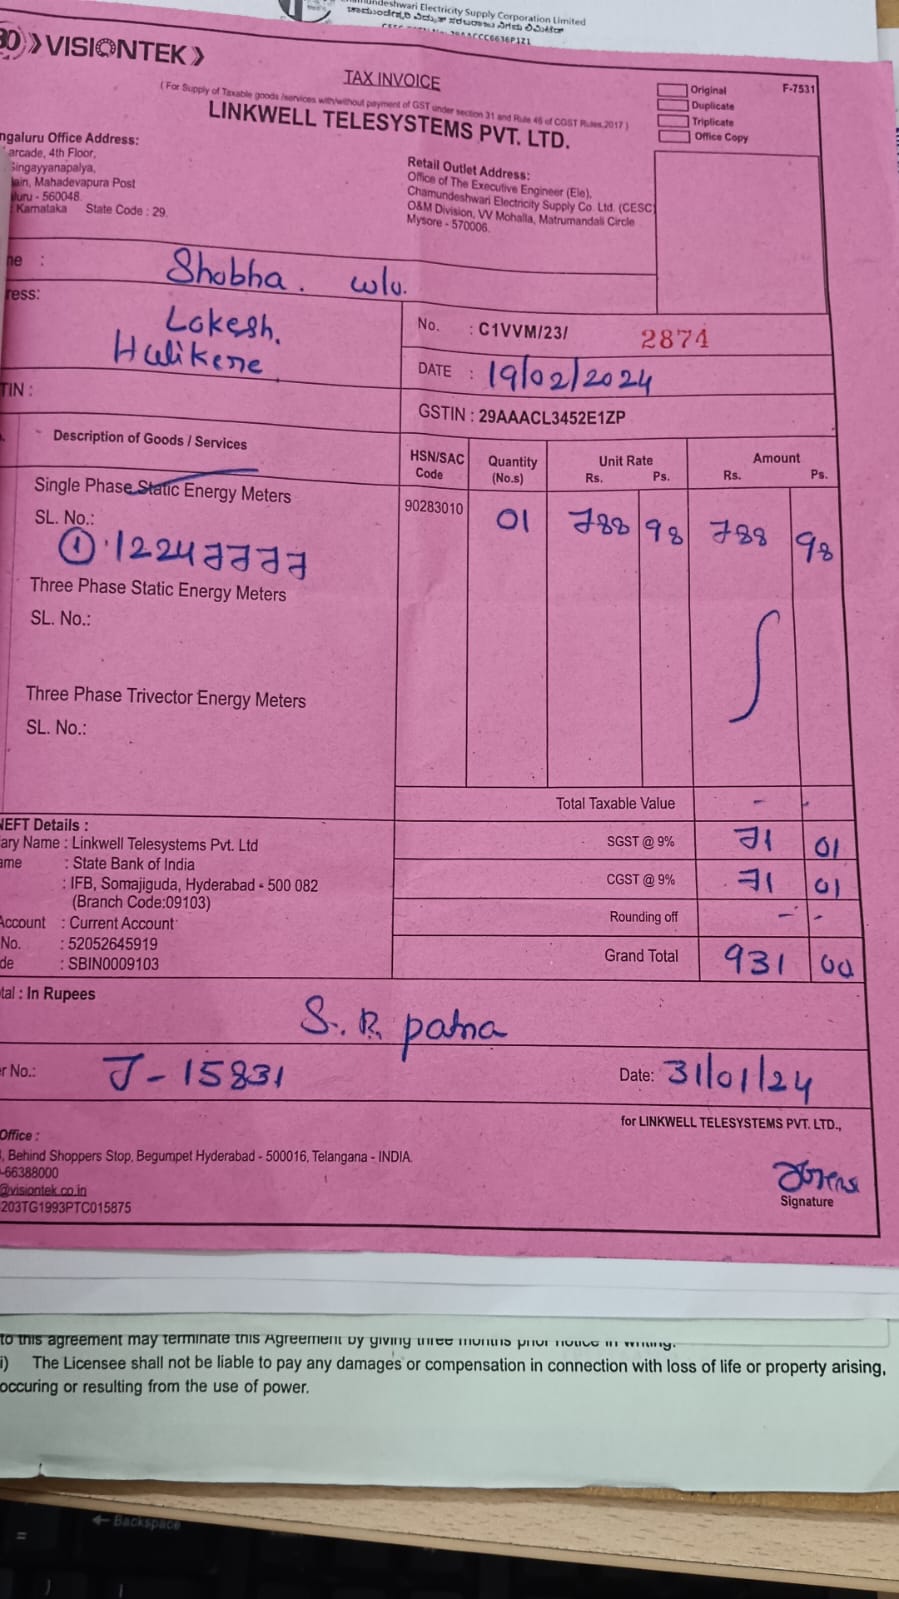 Chamundeshwari Electricity Supply Corporation Limited
ಚಾಮುಂಡೇಶ್ವರಿ ವಿದ್ಯುತ್ ಸರಬರಾಜು ನಿಗಮ ಲಿಮಿಟೆಡ್
VISIONTEK
TAX INVOICE
( For Supply of Taxable goods /services with/without payment of GST under section 31 and Rule 46 of CGST Rules,2017 )
LINKWELL TELESYSTEMS PVT. LTD.
Original
Duplicate
Triplicate
Office Copy
F-7531
ngaluru Office Address:
arcade, 4th Floor,
Singayyanapalya,
ain, Mahadevapura Post
luru - 560048.
: Karnataka State Code : 29.
Retail Outlet Address:
Office of The Executive Engineer (Ele),
Chamundeshwari Electricity Supply Co. Ltd. (CESC)
O&M Division, VV Mohalla, Matrumandali Circle
Mysore - 570006.
me : Shobha. w/o.
ress: Lokesh.
Halikere
TIN :
No. : C1VVM/23/ 2874
DATE : 19/02/2024
GSTIN : 29AAACL3452E1ZP
Description of Goods / Services
HSN/SAC Code
Quantity (No.s)
Unit Rate Rs. Ps.
Amount Rs. Ps.
Single Phase Static Energy Meters
90283010 01 788 98 788 98
SL. No.:
① 12247777
Three Phase Static Energy Meters
SL. No.:
Three Phase Trivector Energy Meters
SL. No.:
Total Taxable Value - -
SGST @ 9% 71 01
CGST @ 9% 71 01
Rounding off - -
Grand Total 931 00
NEFT Details :
ary Name : Linkwell Telesystems Pvt. Ltd
ame : State Bank of India
: IFB, Somajiguda, Hyderabad - 500 082
(Branch Code:09103)
Account : Current Account
No. : 52052645919
de : SBIN0009103
tal : In Rupees
S. R. patna
r No.: J-15831
Date: 31/01/24
for LINKWELL TELESYSTEMS PVT. LTD.,
Signature
Office :
, Behind Shoppers Stop, Begumpet Hyderabad - 500016, Telangana - INDIA.
-66388000
@visiontek.co.in
203TG1993PTC015875
to this agreement may terminate this Agreement by giving three months prior notice in writing.
i) The Licensee shall not be liable to pay any damages or compensation in connection with loss of life or property arising,
occuring or resulting from the use of power.
← Backspace
=